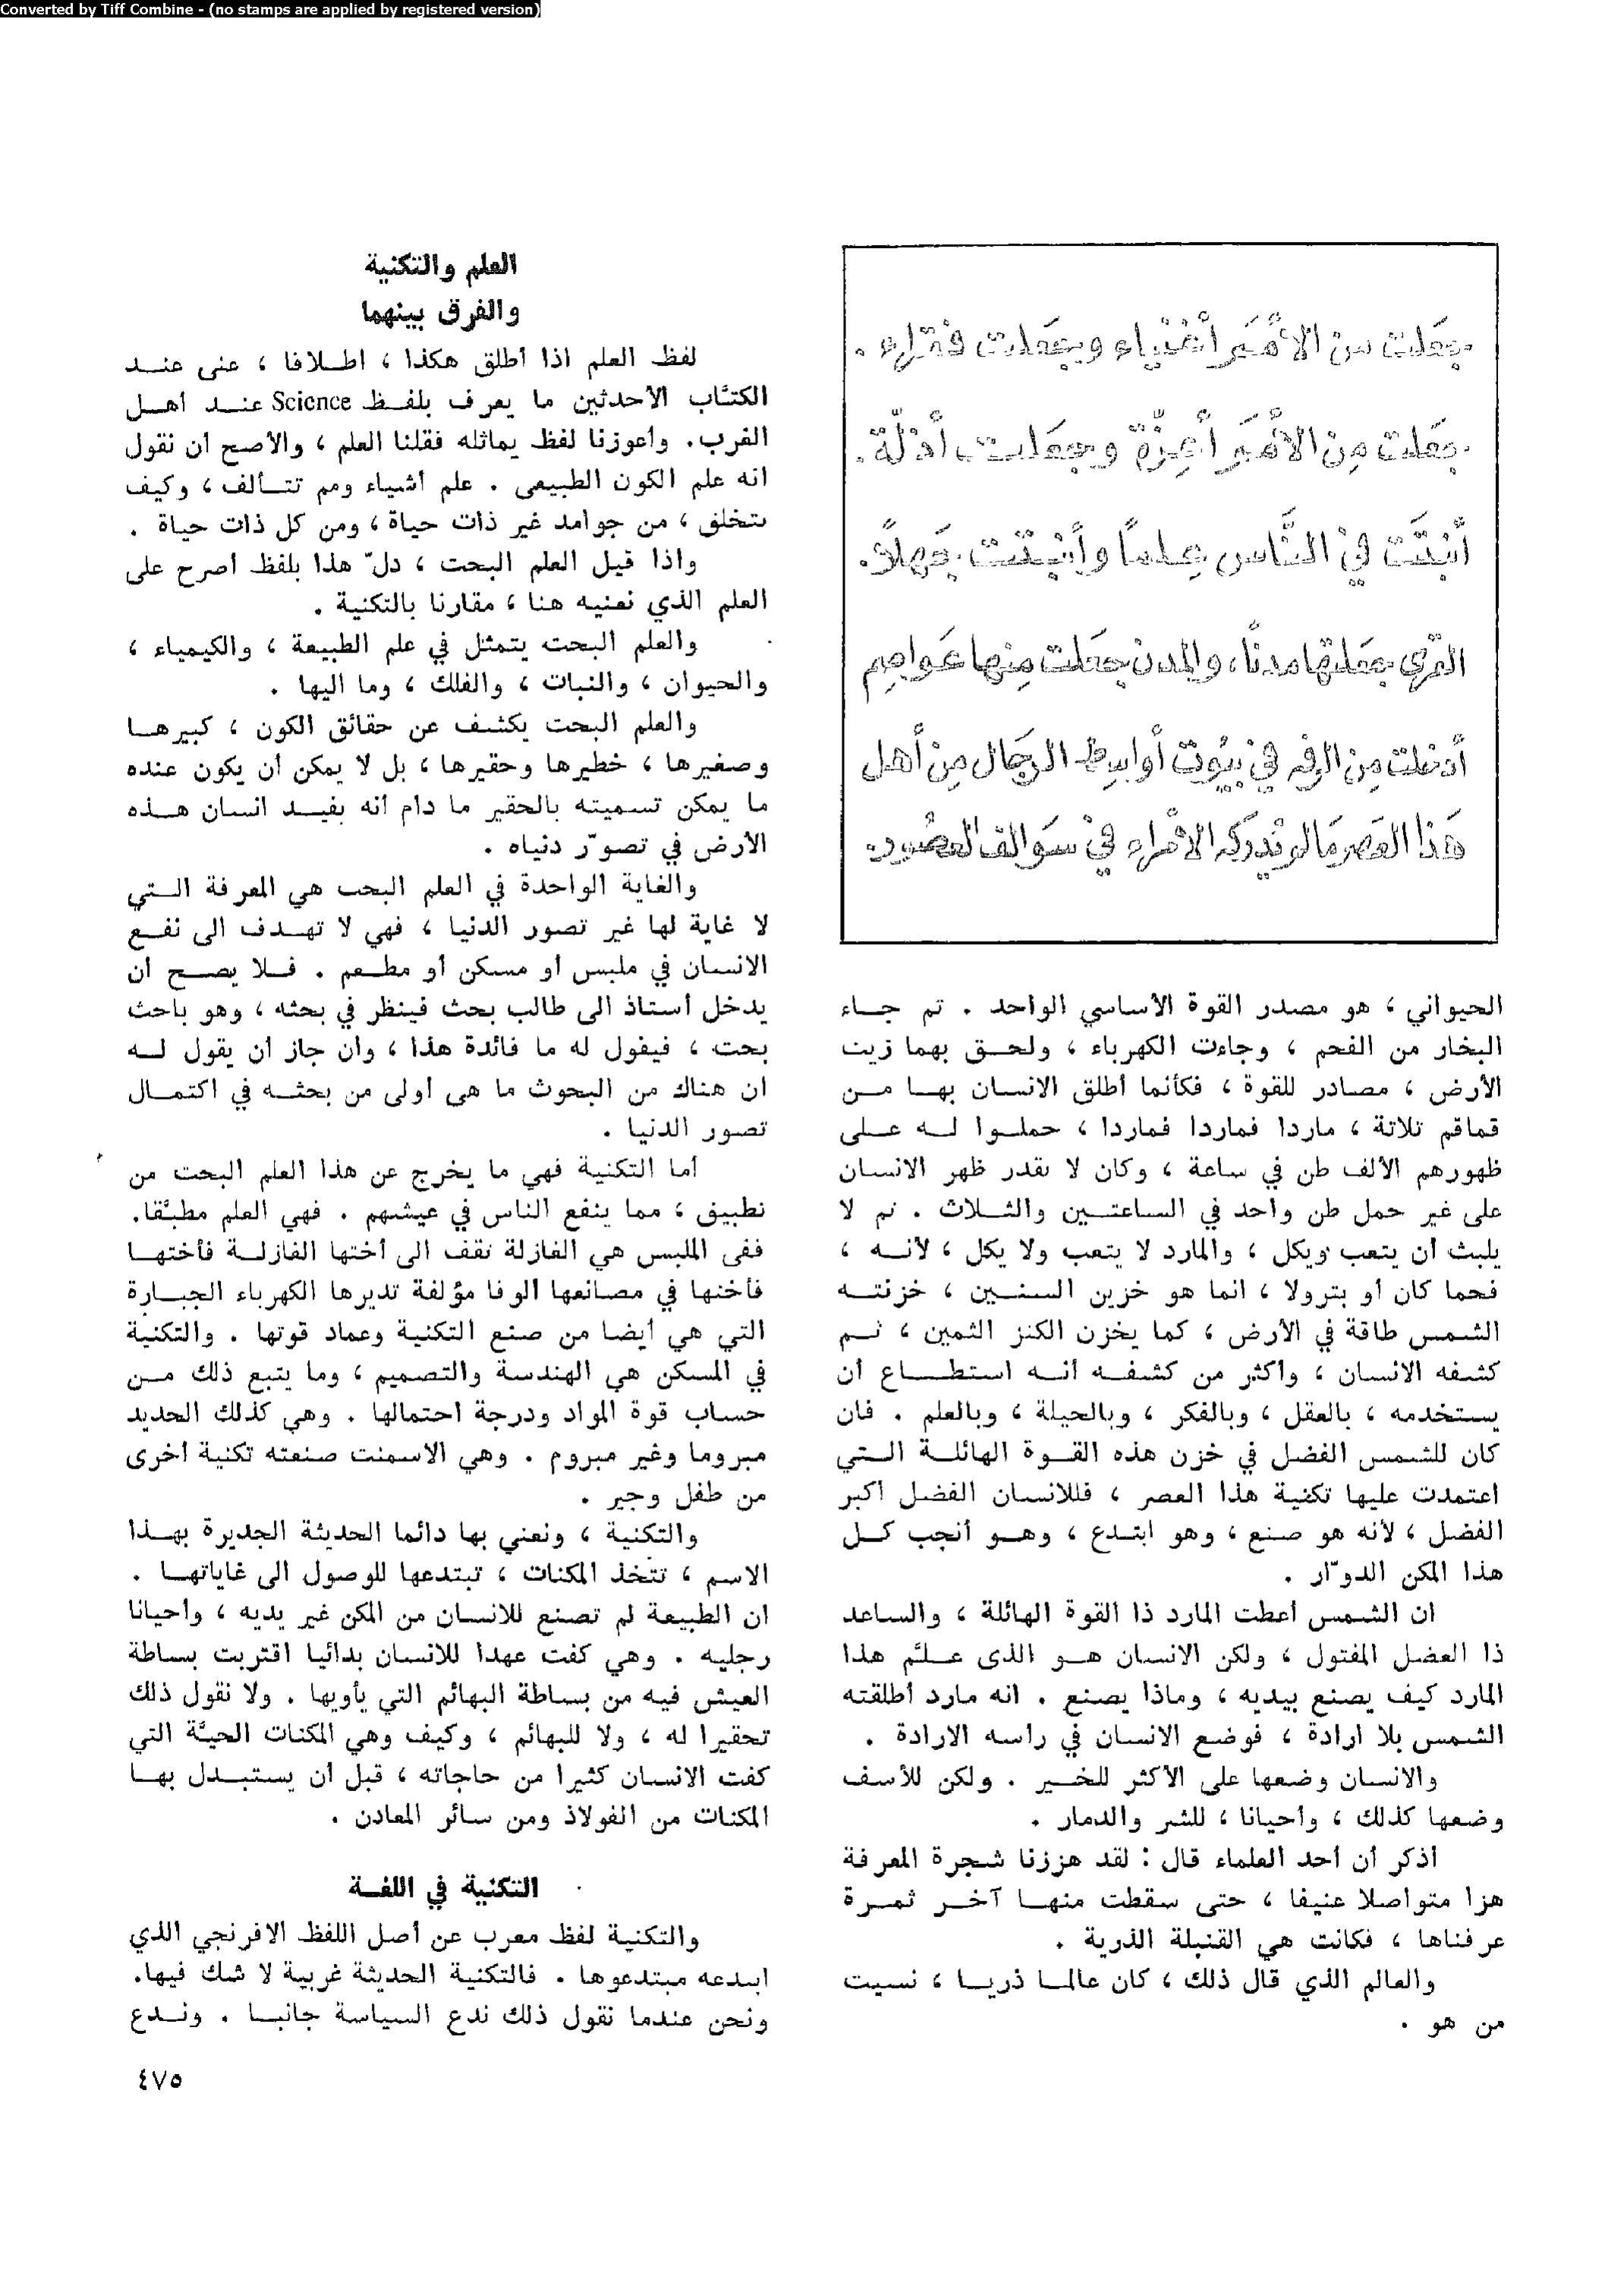 Converted by Tiff Combine - (no stamps are applied by registered version)
جعلت من الأمم أغنياء وجعلت فقراء .
جعلت من الأمم أعزة وجعلت أذلة .
أنبتت في الناس علماً وأنبتت جهلاً .
القرى جعلتها مدنًا ، والمدن جعلت منها عواصم
أدخلت من الرفه في بيوت أواسط الرجال من أهل
هذا العصر ما لم يدركه الأمراء في سوالف العصور .
الحيواني ، هو مصدر القوة الأساسي الواحد . ثم جاء
البخار من الفحم ، وجاءت الكهرباء ، ولحق بهما زيت
الأرض ، مصادر للقوة ، فكأنما أطلق الانسان بها من
قماقم ثلاثة ، ماردا فماردا فماردا ، حملوا له على
ظهورهم الألف طن في ساعة ، وكان لا يقدر ظهر الانسان
على غير حمل طن واحد في الساعتين والثلاث . ثم لا
يلبث أن يتعب ويكل ، والمارد لا يتعب ولا يكل ، لأنه ،
فحما كان أو بترولا ، انما هو خزين السنين ، خزنته
الشمس طاقة في الأرض ، كما يخزن الكنز الثمين ، ثم
كشفه الانسان ، وأكثر من كشفه أنه استطاع أن
يستخدمه ، بالعقل ، وبالفكر ، وبالحيلة ، وبالعلم . فان
كان للشمس الفضل في خزن هذه القوة الهائلة التي
اعتمدت عليها تكنية هذا العصر ، فللانسان الفضل أكبر
الفضل ، لأنه هو صنع ، وهو ابتدع ، وهو أنجب كل
هذا المكن الدوّار .
ان الشمس أعطت المارد ذا القوة الهائلة ، والساعد
ذا العضل المفتول ، ولكن الانسان هو الذى علّم هذا
المارد كيف يصنع بيديه ، وماذا يصنع . انه مارد أطلقته
الشمس بلا ارادة ، فوضع الانسان في راسه الارادة .
والانسان وضعها على الأكثر للخير . ولكن للأسف
وضعها كذلك ، وأحيانا ، للشر والدمار .
أذكر أن أحد العلماء قال : لقد هززنا شجرة المعرفة
هزا متواصلا عنيفا ، حتى سقطت منها آخر ثمرة
عرفناها ، فكانت هي القنبلة الذرية .
والعالم الذي قال ذلك ، كان عالما ذريا ، نسيت
من هو .
العلم والتكنية
والفرق بينهما
لفظ العلم اذا أطلق هكذا ، اطلاقا ، عنى عند
الكتّاب الأحدثين ما يعرف بلفظ Science عند أهل
الغرب. وأعوزنا لفظ يماثله فقلنا العلم ، والأصح أن نقول
انه علم الكون الطبيعى . علم أشياء ومم تتألف ، وكيف
تتخلق ، من جوامد غير ذات حياة ، ومن كل ذات حياة .
واذا قيل العلم البحت ، دلّ هذا بلفظ أصرح على
العلم الذي نعنيه هنا ، مقارنا بالتكنية .
والعلم البحت يتمثل في علم الطبيعة ، والكيمياء ،
والحيوان ، والنبات ، والفلك ، وما اليها .
والعلم البحت يكشف عن حقائق الكون ، كبيرها
وصغيرها ، خطيرها وحقيرها ، بل لا يمكن أن يكون عنده
ما يمكن تسميته بالحقير ما دام أنه يفيد انسان هذه
الأرض في تصوّر دنياه .
والغاية الواحدة في العلم البحت هي المعرفة التي
لا غاية لها غير تصور الدنيا ، فهي لا تهدف الى نفع
الانسان في ملبس أو مسكن أو مطعم . فلا يصح أن
يدخل أستاذ الى طالب بحث فينظر في بحثه ، وهو باحث
بحت ، فيقول له ما فائدة هذا ، وان جاز أن يقول له
ان هناك من البحوث ما هى أولى من بحثه في اكتمال
تصور الدنيا .
أما التكنية فهي ما يخرج عن هذا العلم البحت من
تطبيق ، مما ينفع الناس في عيشهم . فهي العلم مطبّقا.
ففى الملبس هي الغازلة تقف الى أختها الغازلة فأختها
فأختها في مصانعها ألوفا مؤلفة تديرها الكهرباء الجبارة
التي هي أيضا من صنع التكنية وعماد قوتها . والتكنية
في المسكن هي الهندسة والتصميم ، وما يتبع ذلك من
حساب قوة المواد ودرجة احتمالها . وهي كذلك الحديد
مبروما وغير مبروم . وهي الاسمنت صنعته تكنية أخرى
من طفل وجير .
والتكنية ، ونعني بها دائما الحديثة الجديرة بهذا
الاسم ، تتخذ المكنات ، تبتدعها للوصول الى غاياتها .
ان الطبيعة لم تصنع للانسان من المكن غير يديه ، وأحيانا
رجليه . وهي كفت عهدا للانسان بدائيا اقتربت بساطة
العيش فيه من بساطة البهائم التي يأويها . ولا نقول ذلك
تحقيرا له ، ولا للبهائم ، وكيف وهي المكنات الحيّة التي
كفت الانسان كثيرا من حاجاته ، قبل أن يستبدل بها
المكنات من الفولاذ ومن سائر المعادن .
التكنية في اللغة
والتكنية لفظ معرب عن أصل اللفظ الافرنجي الذي
ابتدعه مبتدعوها . فالتكنية الحديثة غربية لا شك فيها.
ونحن عندما نقول ذلك ندع السياسة جانبا . وندع
٤٧٥